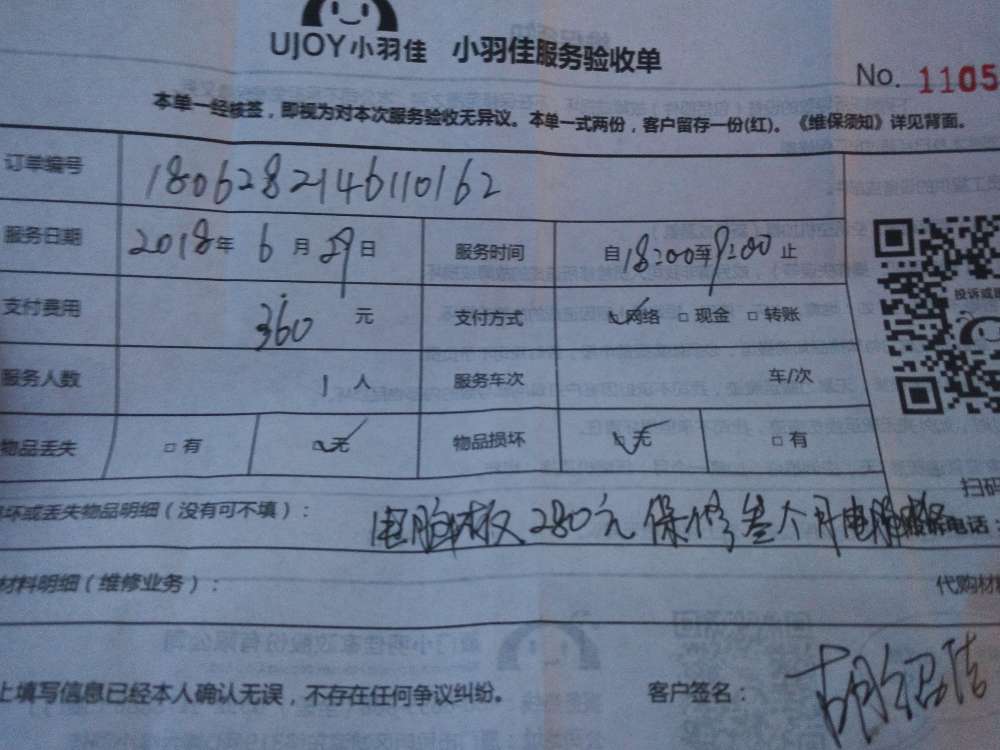 UJOY小羽佳 小羽佳服务验收单
No. 1105
本单一经核签，即视为对本次服务验收无异议。本单一式两份，客户留存一份(红)。《维保须知》详见背面。
订单编号 1806282146110162
服务日期 2018年 6月 29日 服务时间 自18:00至9:00止
支付费用 360 元 支付方式 网络 现金 转账
服务人数 1人 服务车次 车/次
物品丢失 有 无 物品损坏 无 有
扫码
坏或丢失物品明细（没有可不填）： 电脑板 280元 保修叁个月电脑板 电话
材料明细（维修业务）： 代购材
上填写信息已经本人确认无误，不存在任何争议纠纷。 客户签名：